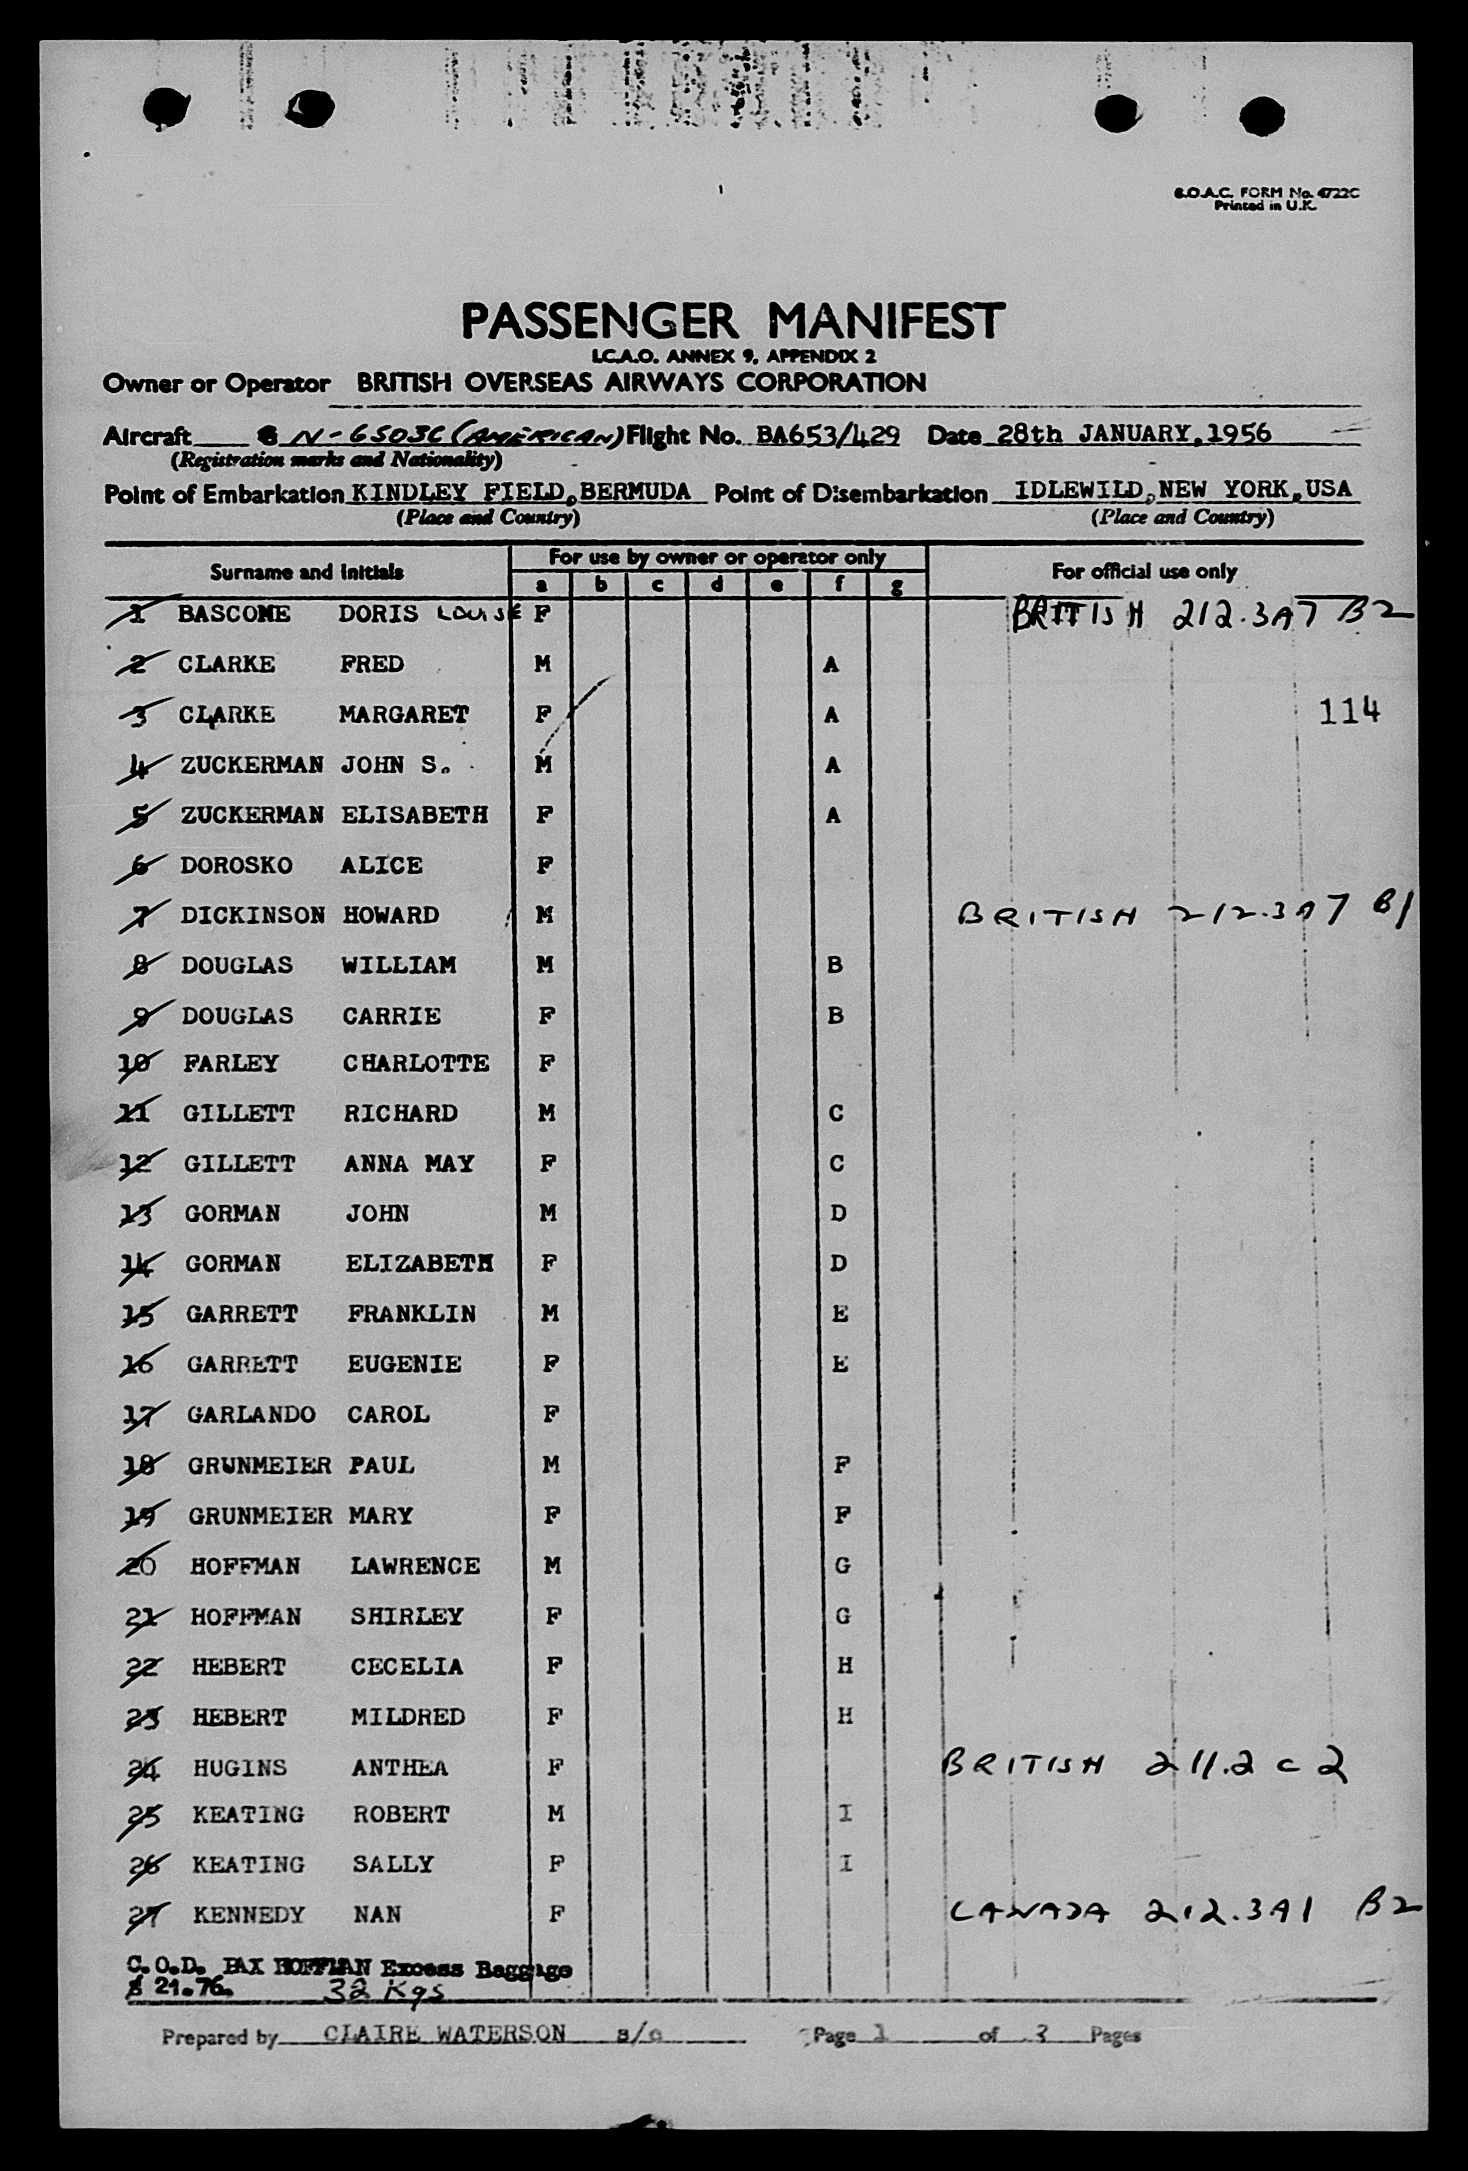 B.O.A.C. FORM No. 4722C
Printed in U.K.
PASSENGER MANIFEST
I.C.A.O. ANNEX 9, APPENDIX 2
Owner or Operator BRITISH OVERSEAS AIRWAYS CORPORATION
Aircraft G N-6503C (AMERICAN) Flight No. BA653/429 Date 28th JANUARY, 1956
(Registration marks and Nationality)
Point of Embarkation KINDLEY FIELD, BERMUDA Point of Disembarkation IDLEWILD, NEW YORK, USA
(Place and Country) (Place and Country)
Surname and Initials For use by owner or operator only For official use only
a b c d e f g
1 BASCOME DORIS LOUISE F BRITISH 212.3A7 B2
2 CLARKE FRED M A
3 CLARKE MARGARET F A 114
4 ZUCKERMAN JOHN S. M A
5 ZUCKERMAN ELISABETH F A
6 DOROSKO ALICE F
7 DICKINSON HOWARD M BRITISH 212.3A7 B1
8 DOUGLAS WILLIAM M B
9 DOUGLAS CARRIE F B
10 FARLEY CHARLOTTE F
11 GILLETT RICHARD M C
12 GILLETT ANNA MAY F C
13 GORMAN JOHN M D
14 GORMAN ELIZABETH F D
15 GARRETT FRANKLIN M E
16 GARRETT EUGENIE F E
17 GARLANDO CAROL F
18 GRUNMEIER PAUL M F
19 GRUNMEIER MARY F F
20 HOFFMAN LAWRENCE M G
21 HOFFMAN SHIRLEY F G
22 HEBERT CECELIA F H
23 HEBERT MILDRED F H
24 HUGINS ANTHEA F BRITISH 211.2 C 2
25 KEATING ROBERT M I
26 KEATING SALLY F I
27 KENNEDY NAN F CANADA 212.3A1 B2
C.O.D. PAX HOFFMAN Excess Baggage
$ 21.76. 32 Kgs
Prepared by CLAIRE WATERSON s/c Page 1 of 3 Pages